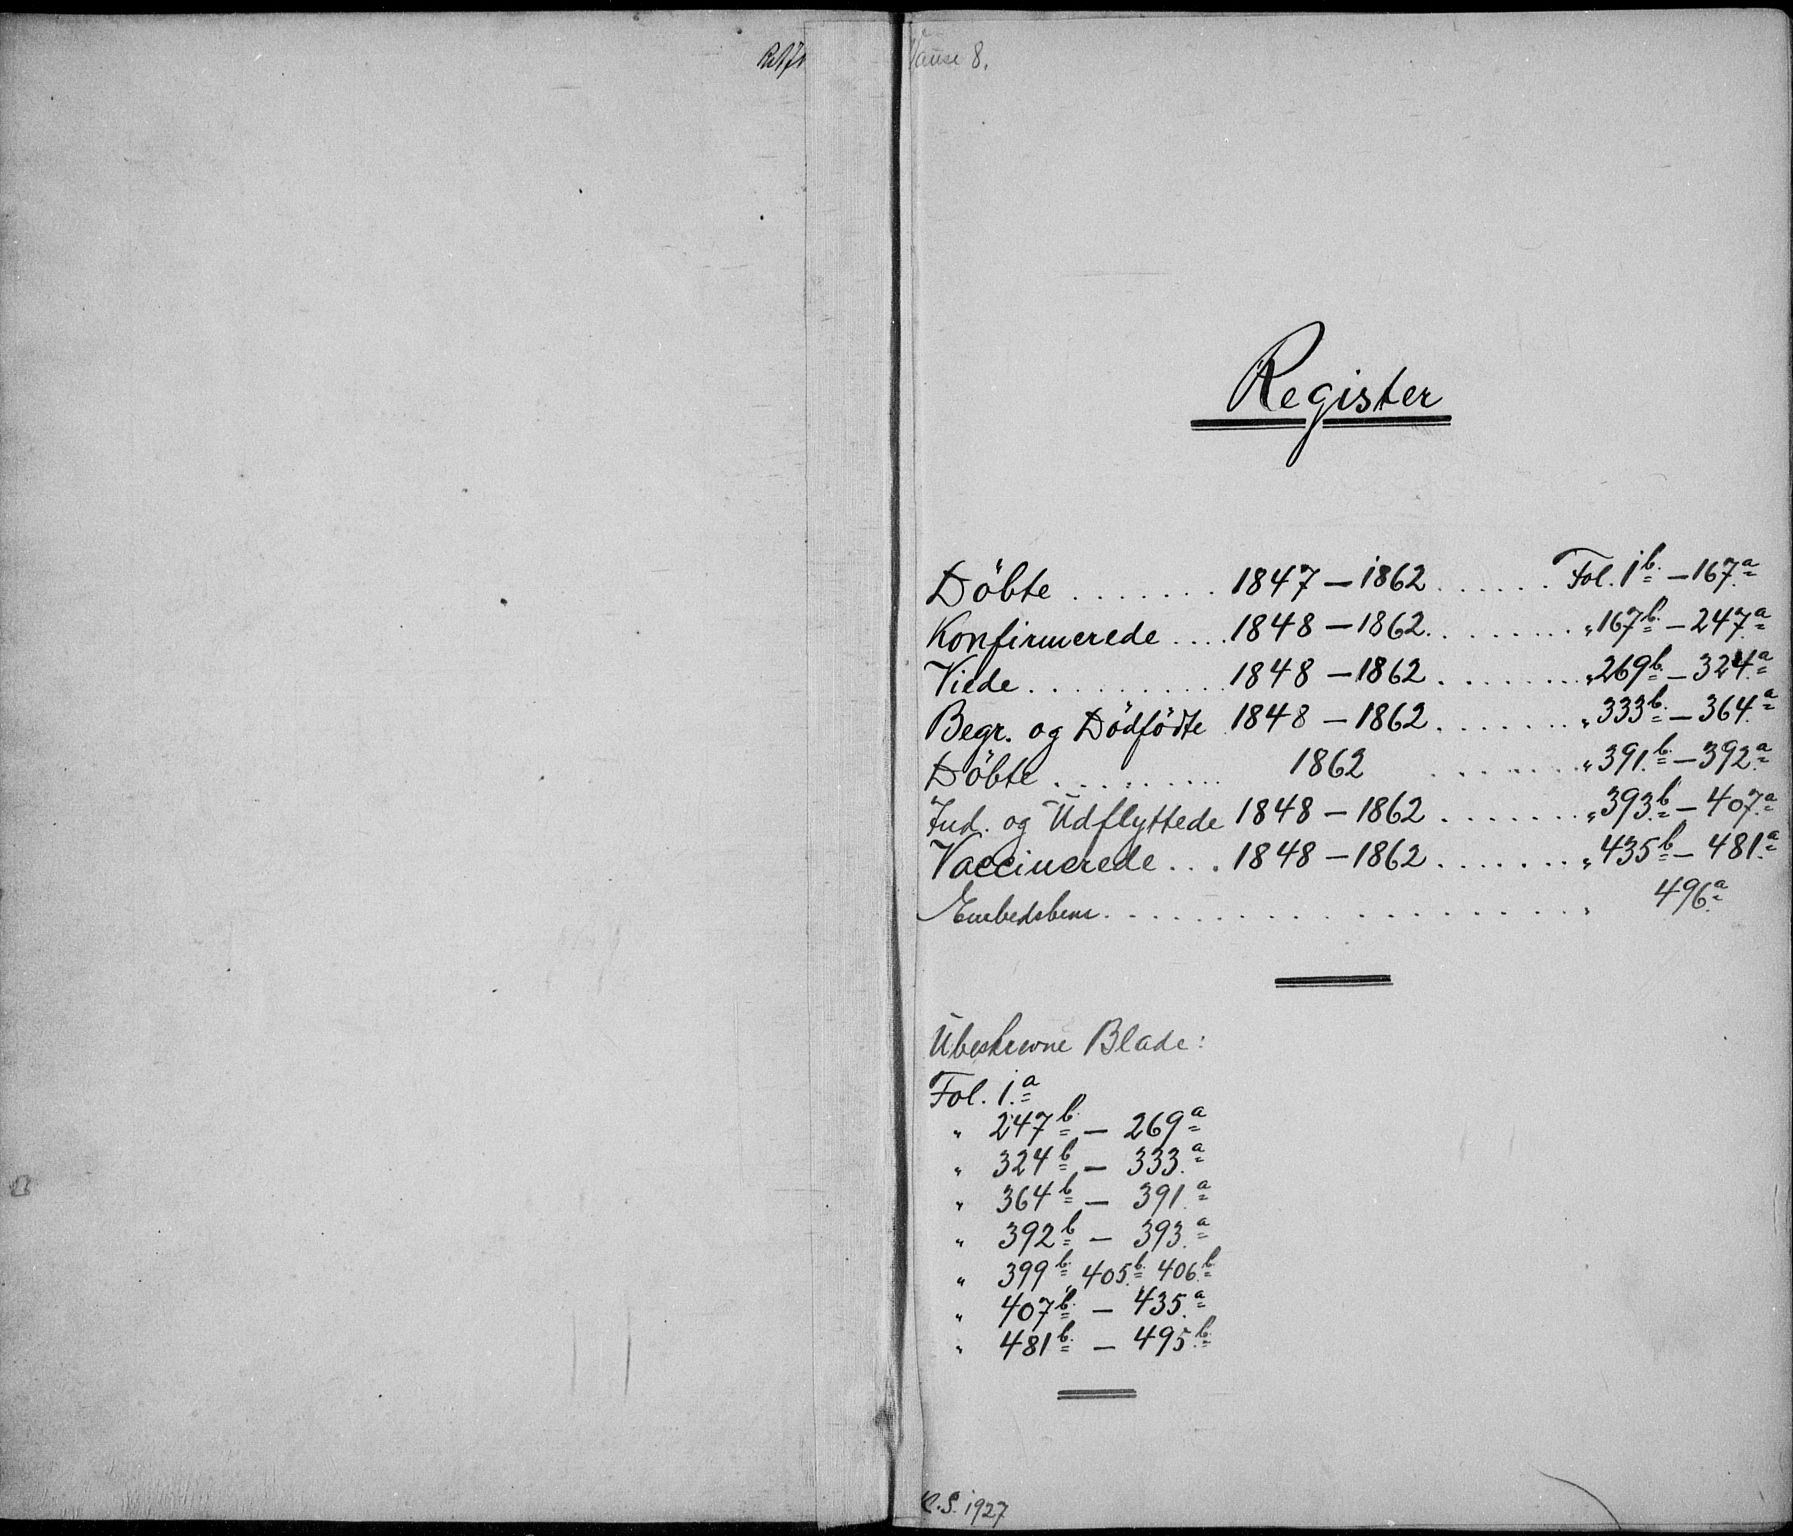 Vanse 8.
Register
Döbte ....... 1847 – 1862 ...... Fol. 1b. – 167.a
Konfirmerede .... 1848 – 1862 ........ " 167b. – 247.a
Viede .......... 1848 – 1862 ....... " 269b. – 324.a
Begr. og Dödfödte 1848 – 1862 ....... " 333b. – 364.a
Döbte ........ 1862 ....... " 391.b. – 392.a
Ind. og Udflyttede 1848 – 1862 ....... " 393.b – 407.a
Vaccinerede ... 1848 – 1862 ....... " 435b – 481.a
Embedsbem. .................... " 496.a
Ubeskrevne Blade:
Fol. 1.a
" 247b. – 269a
" 324b – 333.a
" 364b – 391.a
" 392b – 393.a
" 399b., 405.b. 406.b
" 407b. – 435.a
" 481b. – 495.b.
S. 1927